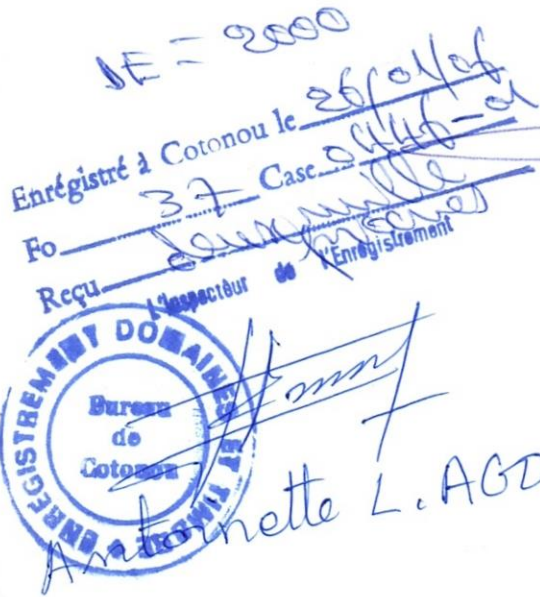 DE = 2000
Enrégistré à Cotonou le 26/01/06
Fo 37 Case 0446-01
Reçu deux mille francs
l'Inspecteur de l'Enrégistrement
ENREGISTREMENT DOMAINES ET TIMBRE
Bureau
de
Cotonou
Antoinette L. AGD